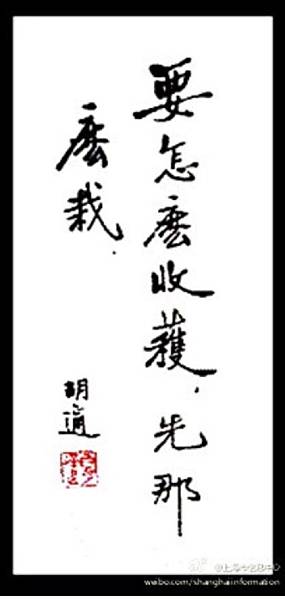 要怎麽收穫，先那
麽栽．
胡適
weibo.com/shanghaiinformation